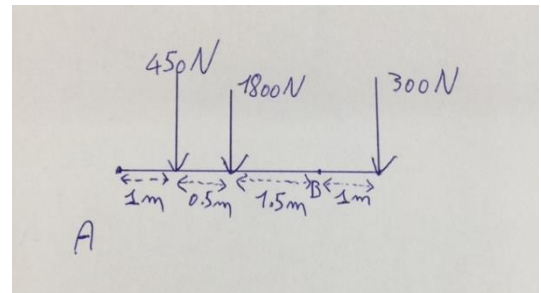 450N
1800N
300N
1m
0.5m
1.5m
B
1m
A